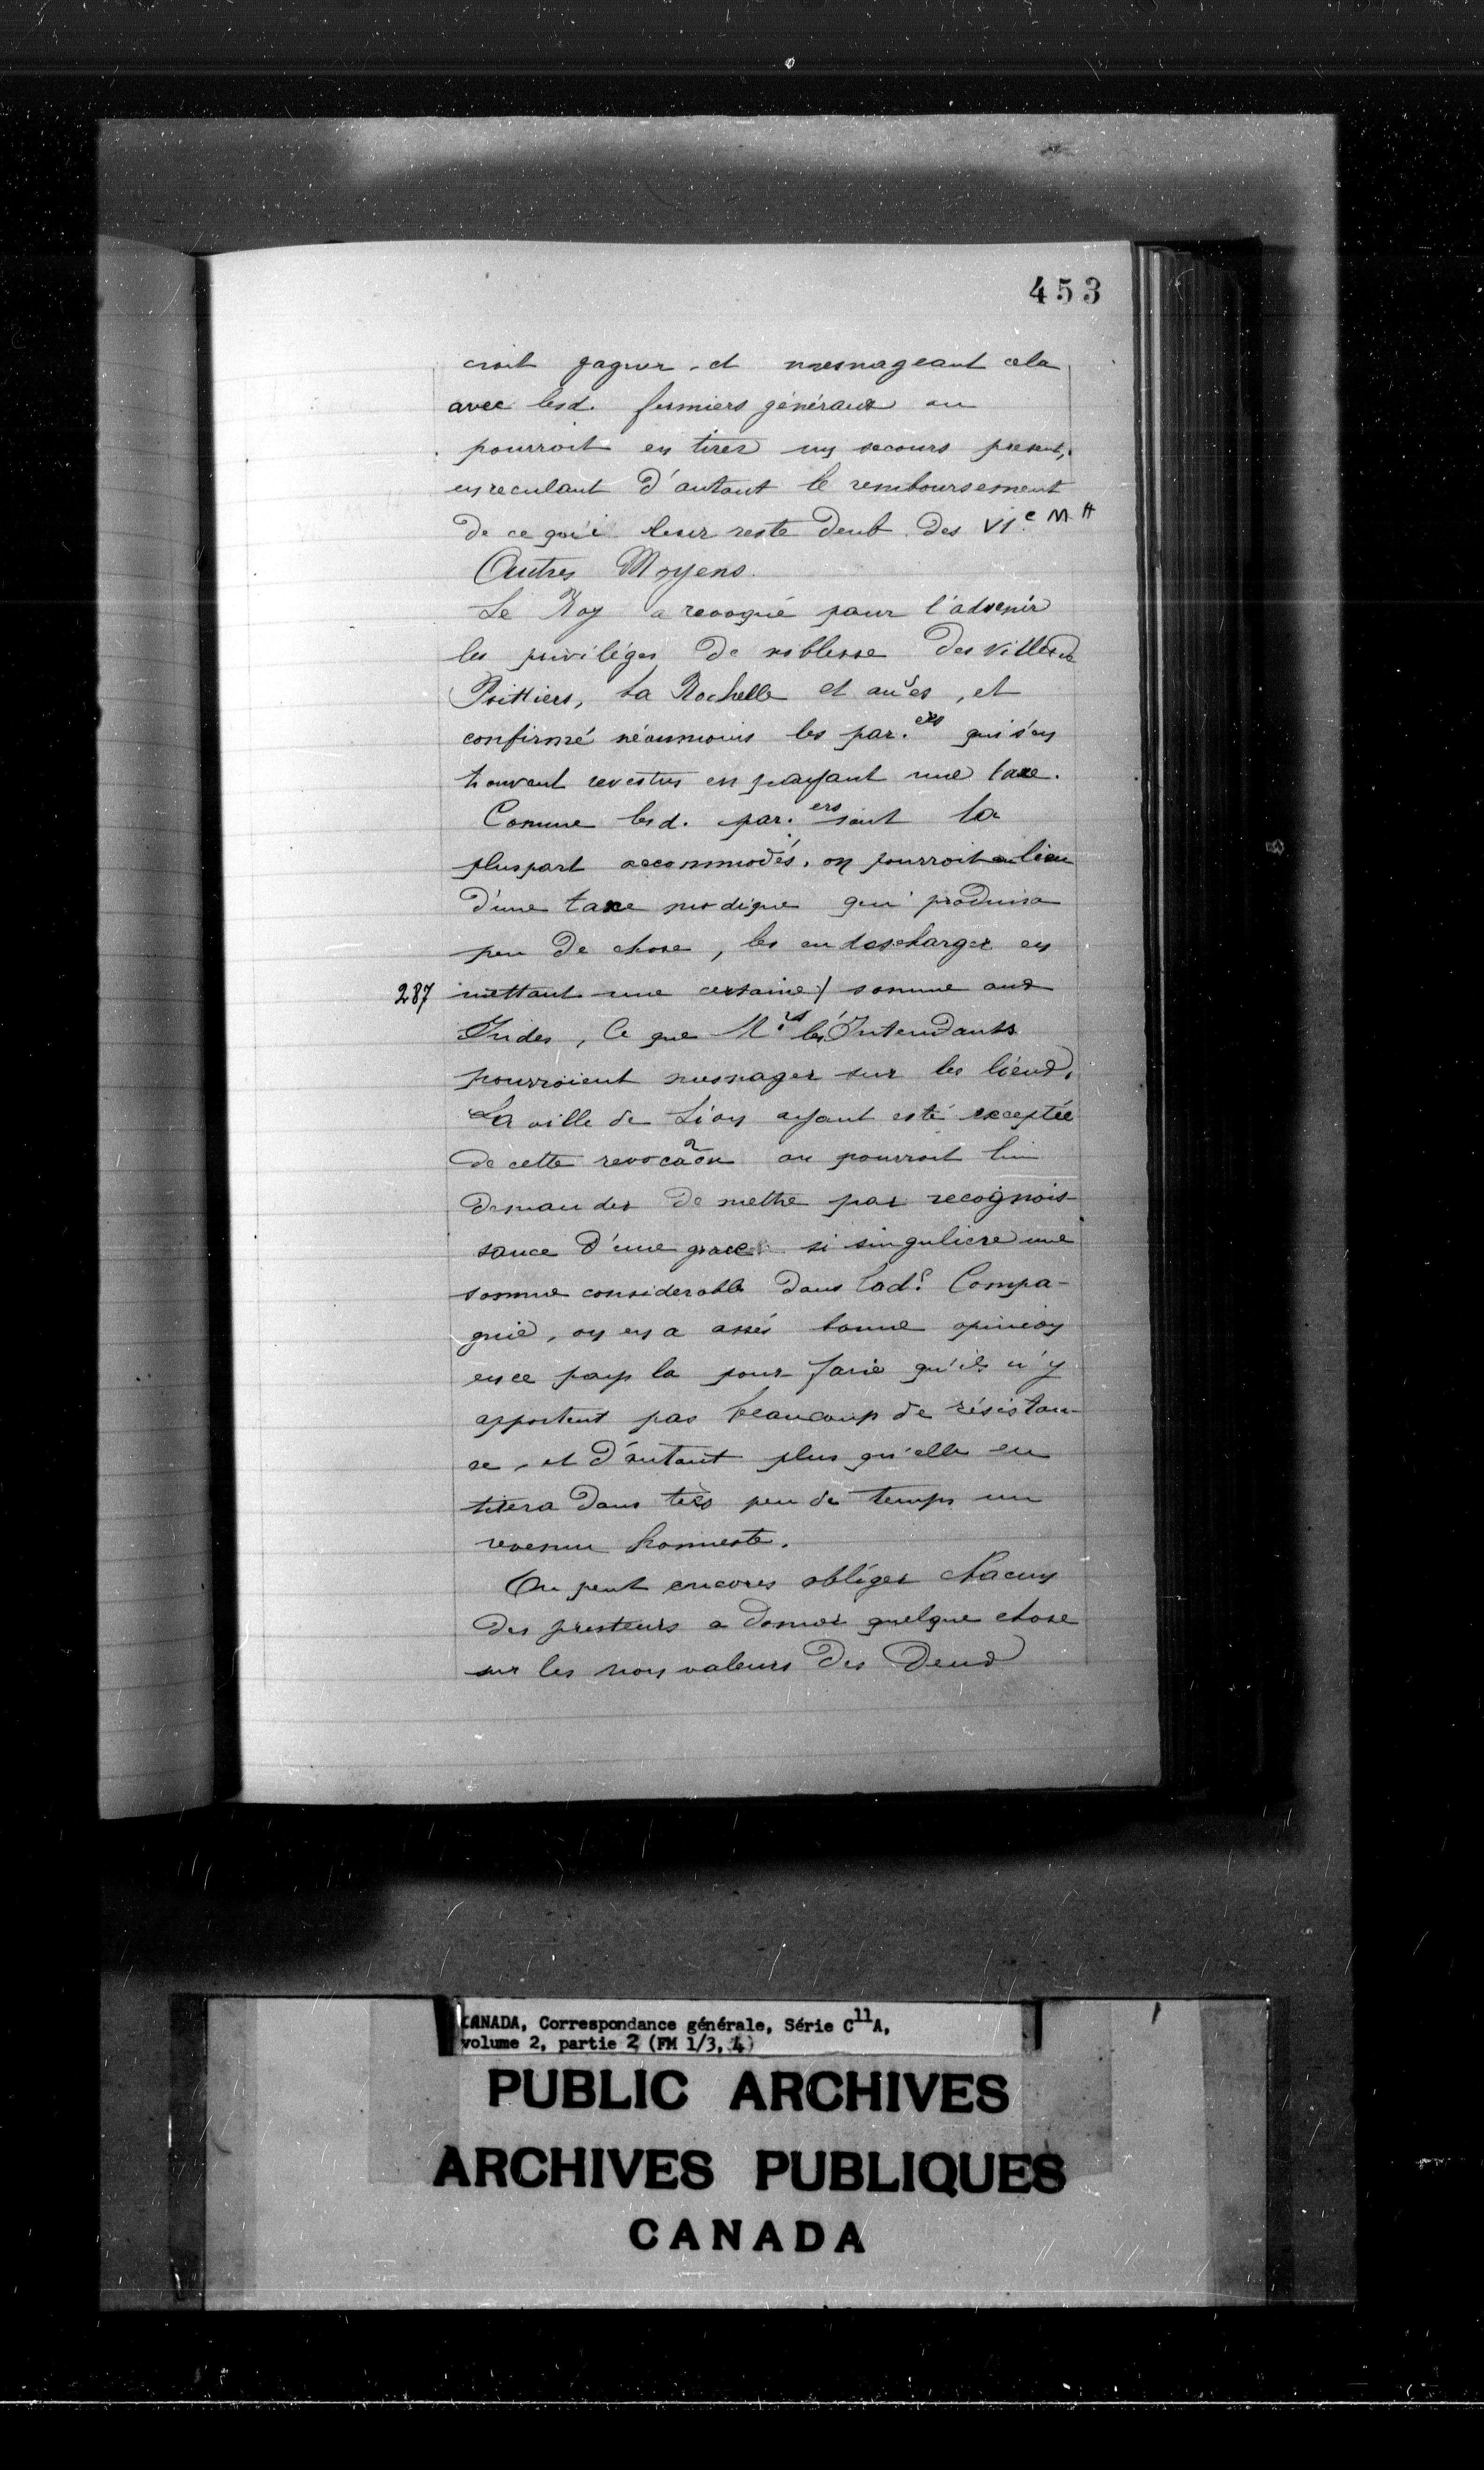 453
croit gagner, et mesnageant cela
avec lesd. fermiers généraux on
pourroit en tirer un secours present,
en reculant d'autant le remboursement
de ce qui leur reste deub des VIc M ₶
Autres Moyens.
Le Roy a revoqué pour l'advenir
les privilèges de noblesse des villes de
Poittiers, La Rochelle et au.es, et
confirmé néanmoins les par.ers qui s'en
trouvent revestus en payant une taxe.
Comme lesd. par.ers sont la
pluspart accommodés, on pourroit au lieu
d'une taxe modique qui produira
peu de chose, les en descharger en
287 mettant une certaine / somme aux
Indes, ce que M.rs les Intendants
pourroient mesnager sur les lieux.
La ville de Lion ayant esté exceptée
de cette revocãon on pourroit lui
demander de mettre par recognois-
sance d'une grace si singuliere une
somme considerable dans lad.e Compa-
gnie, on en a assés bonne opinion
en ce pays la pour faire qu'ils n'y
apportent pas beaucoup de résistan-
ce, et d'autant plus qu'elle en
tirera dans très peu de temps un
revenu honneste.
On peut encores obliger chacun
des presteurs a donner quelque chose
sur les non valeurs des deux
CANADA, Correspondance générale, Série C11A,
volume 2, partie 2 (FM 1/3, 4)
PUBLIC ARCHIVES
ARCHIVES PUBLIQUES
CANADA